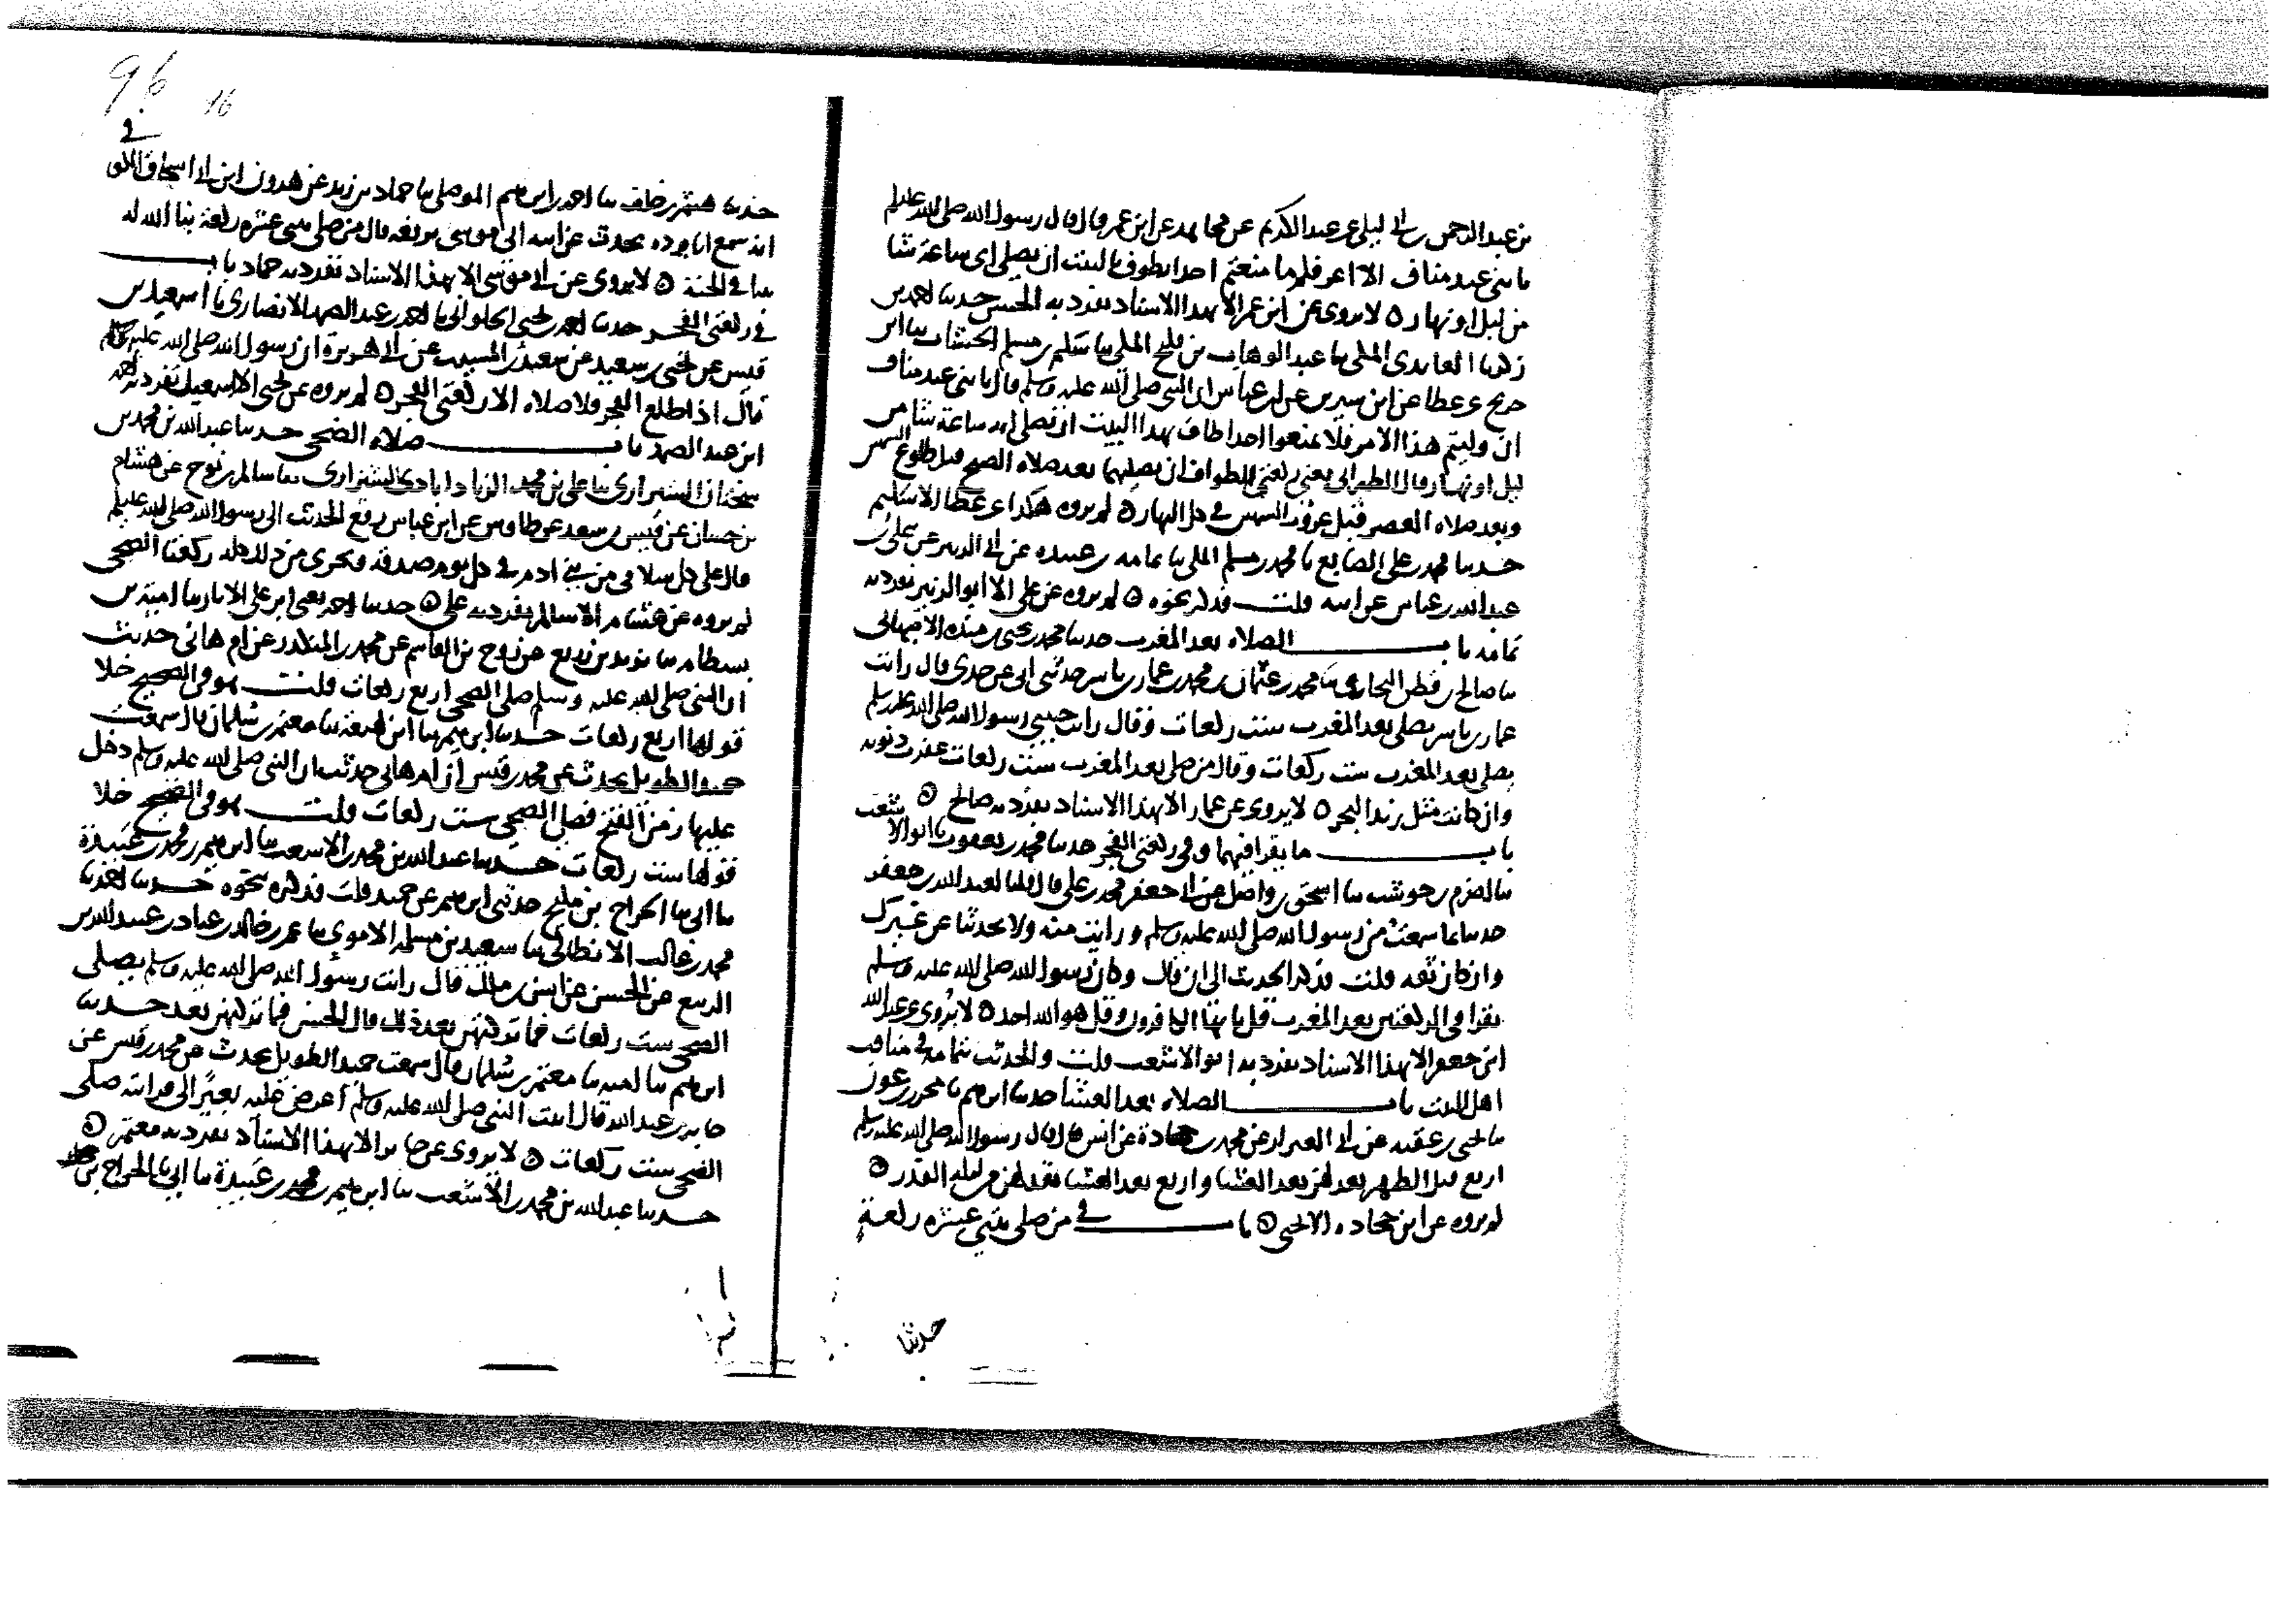 بن عبد الرحمن بن أبي ليلى عن عبد الكريم عن مجاهد عن ابن عمر قال قال رسول الله صلى الله عليه وسلم
يا بني عبد مناف الا اعرفنكم ما منعتم احدا يطوف بالبيت ان يصلي اي ساعة شا
من ليل او نهار ٥ لا يروى عن ابن عمر الا بهذا الاسناد تفرد به الحسن حدثنا احمد بن
زكريا العابدي المكي ثنا عبد الوهاب بن فليح المكي ثنا سليم بن مسلم الخشاب ثنا ابن
جريج عن عطا عن ابن عباس ان النبي صلى الله عليه وسلم قال يا بني عبد مناف
ان وليتم هذا الامر فلا تمنعوا احدا طاف بهذا البيت ان يصلي اية ساعة شا من
ليل او نهار قال الطبراني يعني ركعتي الطواف ان يصليهما بعد صلاة الصبح قبل طلوع الشمس
وبعد صلاة العصر قبل غروب الشمس في كل النهار ٥ لم يروه هكذا عن عطا الا سليم
حدثنا محمد بن علي الصايغ ثنا محمد بن مسلم المكي ثنا ثمامة بن عبيدة عن أبي الزبير عن علي بن
عبد الله بن عباس عن ابيه قلت فذكر نحوه ٥ لم يروه عن علي الا ابو الزبير تفرد به
ثمامة باب الصلاة بعد المغرب حدثنا محمد بن يحيى بن منده الاصبهاني
ثنا صالح بن قطن البخاري ثنا محمد بن عمار بن محمد بن عمار بن ياسر حدثني ابي عن جدي قال رايت
عمار بن ياسر يصلي بعد المغرب ست ركعات وقال رايت حبيبي رسول الله صلى الله عليه وسلم
يصلي بعد المغرب ست ركعات وقال من صلى بعد المغرب ست ركعات غفرت ذنوبه
وان كانت مثل زبد البحر ٥ لا يروى عن عمار الا بهذا الاسناد تفرد به صالح ٥
باب ما يقرا فيهما وفي ركعتي الفجر حدثنا محمد بن يعقوب ثنا ابو الاشعث
ثنا اصرم بن حوشب ثنا اسحق بن واصل عن أبي جعفر محمد بن علي قال قلنا لعبد الله بن جعفر
حدثنا ما سمعت من رسول الله صلى الله عليه وسلم ورايت منه ولا تحدثنا عن غيرك
وان كان ثقة قلت فذكر الحديث الى ان قال وكان رسول الله صلى الله عليه وسلم
يقرا في الركعتين بعد المغرب قل يا ايها الكافرون وقل هو الله احد ٥ لا يروى عن عبد الله
ابن جعفر الا بهذا الاسناد تفرد به ابو الاشعث قلت والحديث بتمامه في مناقب
اهل البيت باب الصلاة بعد العشا حدثنا ابراهيم ثنا محرز بن عون
ثنا يحيى بن عقبة عن أبي العيزار عن محمد بن جحادة عن انس قال قال رسول الله صلى الله عليه وسلم
اربع قبل الظهر كعدلهن بعد العشا واربع بعد العشا كعدلهن من ليلة القدر ٥
لم يروه عن ابن جحادة الا يحيى ٥ باب في من صلى ثنتي عشرة ركعة
حدثنا
96 16
حدثنا هيثم بن خلف ثنا احمد بن ابراهيم الموصلي ثنا حماد بن زيد عن هرون ابن أبي اسحاق الكوفي
انه سمع ابا بردة يحدث عن ابيه ابي موسى يرفعه قال من صلى ثنتي عشرة ركعة بنا الله له
بيتا في الجنة ٥ لا يروى عن أبي موسى الا بهذا الاسناد تفرد به حماد باب
في ركعتي الفجر حدثنا احمد بن يحيى الحلواني ثنا احمد بن عبد الصمد الانصاري ثنا اسمعيل بن
قيس عن يحيى بن سعيد عن سعيد بن المسيب عن أبي هريرة ان رسول الله صلى الله عليه وسلم
قال اذا طلع الفجر فلا صلاة الا ركعتي الفجر ٥ لم يروه عن يحيى الا اسمعيل تفرد به احمد
ابن عبد الصمد باب صلاة الضحى حدثنا عبد الله بن محمد بن
سختان الشيرازي ثنا علي بن محمد الزياداباذي الشيرازي ثنا سالم بن نوح عن هشام
بن حسان عن قيس بن سعد عن طاوس عن ابن عباس رفع الحديث الى رسول الله صلى الله عليه وسلم
قال على كل سلامى من بني ادم في كل يوم صدقة ويجزى من ذلك كله ركعتا الضحى
لم يروه عن هشام الا سالم تفرد به علي ٥ حدثنا احمد يعني ابن علي الابار ثنا امية بن
بسطام ثنا يزيد بن زريع عن روح بن القاسم عن محمد بن المنكدر عن ام هاني حديث
ان النبي صلى الله عليه وسلم صلى الضحى اربع ركعات قلت هو في الصحيح خلا
قولها اربع ركعات حدثنا ابراهيم ثنا ابي ثنا معتمر بن سليمان قال سمعت
حميد الطويل يحدث عن محمد بن قيس ان ام هاني حدثت ان النبي صلى الله عليه وسلم دخل
عليها زمن الفتح فصلى الضحى ست ركعات قلت هو في الصحيح خلا
قولها ست ركعات حدثنا عبد الله بن محمد بن الاشعث ثنا ابراهيم بن محمد بن عبيدة
ثنا ابي ثنا الجراح بن مليح حدثني ابراهيم عن حميد قلت فذكره نحوه حدثنا احمد بن
محمد بن غالب الانطاكي ثنا سعيد بن مسلمة الاموي ثنا عمر بن خالد بن عباد بن عبيد الله بن
الربيع عن الحسن عن انس بن ملك قال رايت رسول الله صلى الله عليه وسلم يصلي
الضحى ست ركعات فما تركتهن بعد ذلك قال الحسن فما تركتهن بعد حدثنا
ابراهيم ثنا امية ثنا معتمر بن سليمان قال سمعت حميد الطويل يحدث عن محمد بن قيس عن
جابر بن عبد الله قال اتيت النبي صلى الله عليه وسلم اعرض عليه بعيرا لي فرايته صلى
الضحى ست ركعات ٥ لا يروى عن جابر الا بهذا الاسناد تفرد به معتمر ٥
حدثنا عبد الله بن محمد بن الاشعث ثنا ابراهيم بن محمد بن عبيدة ثنا ابي ثنا الجراح بن مليح